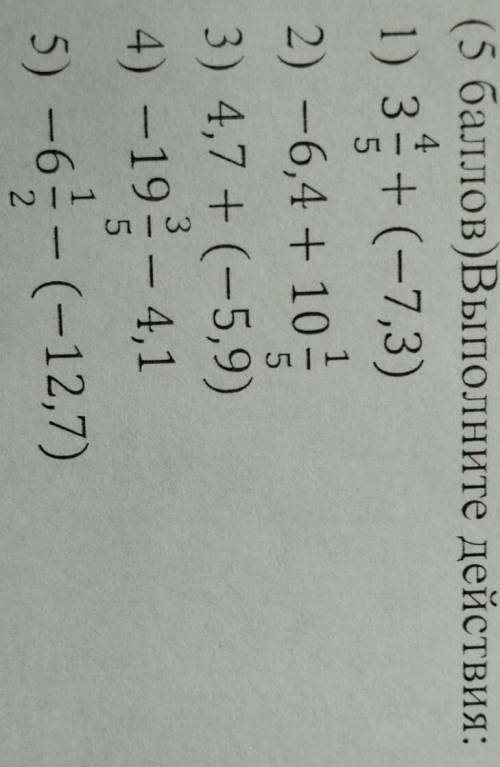 (5 баллов)Выполните действия:
1) 3 4/5 + (−7,3)
2) −6,4 + 10 1/5
3) 4,7 + (−5,9)
4) −19 3/5 − 4,1
5) −6 1/2 − (−12,7)